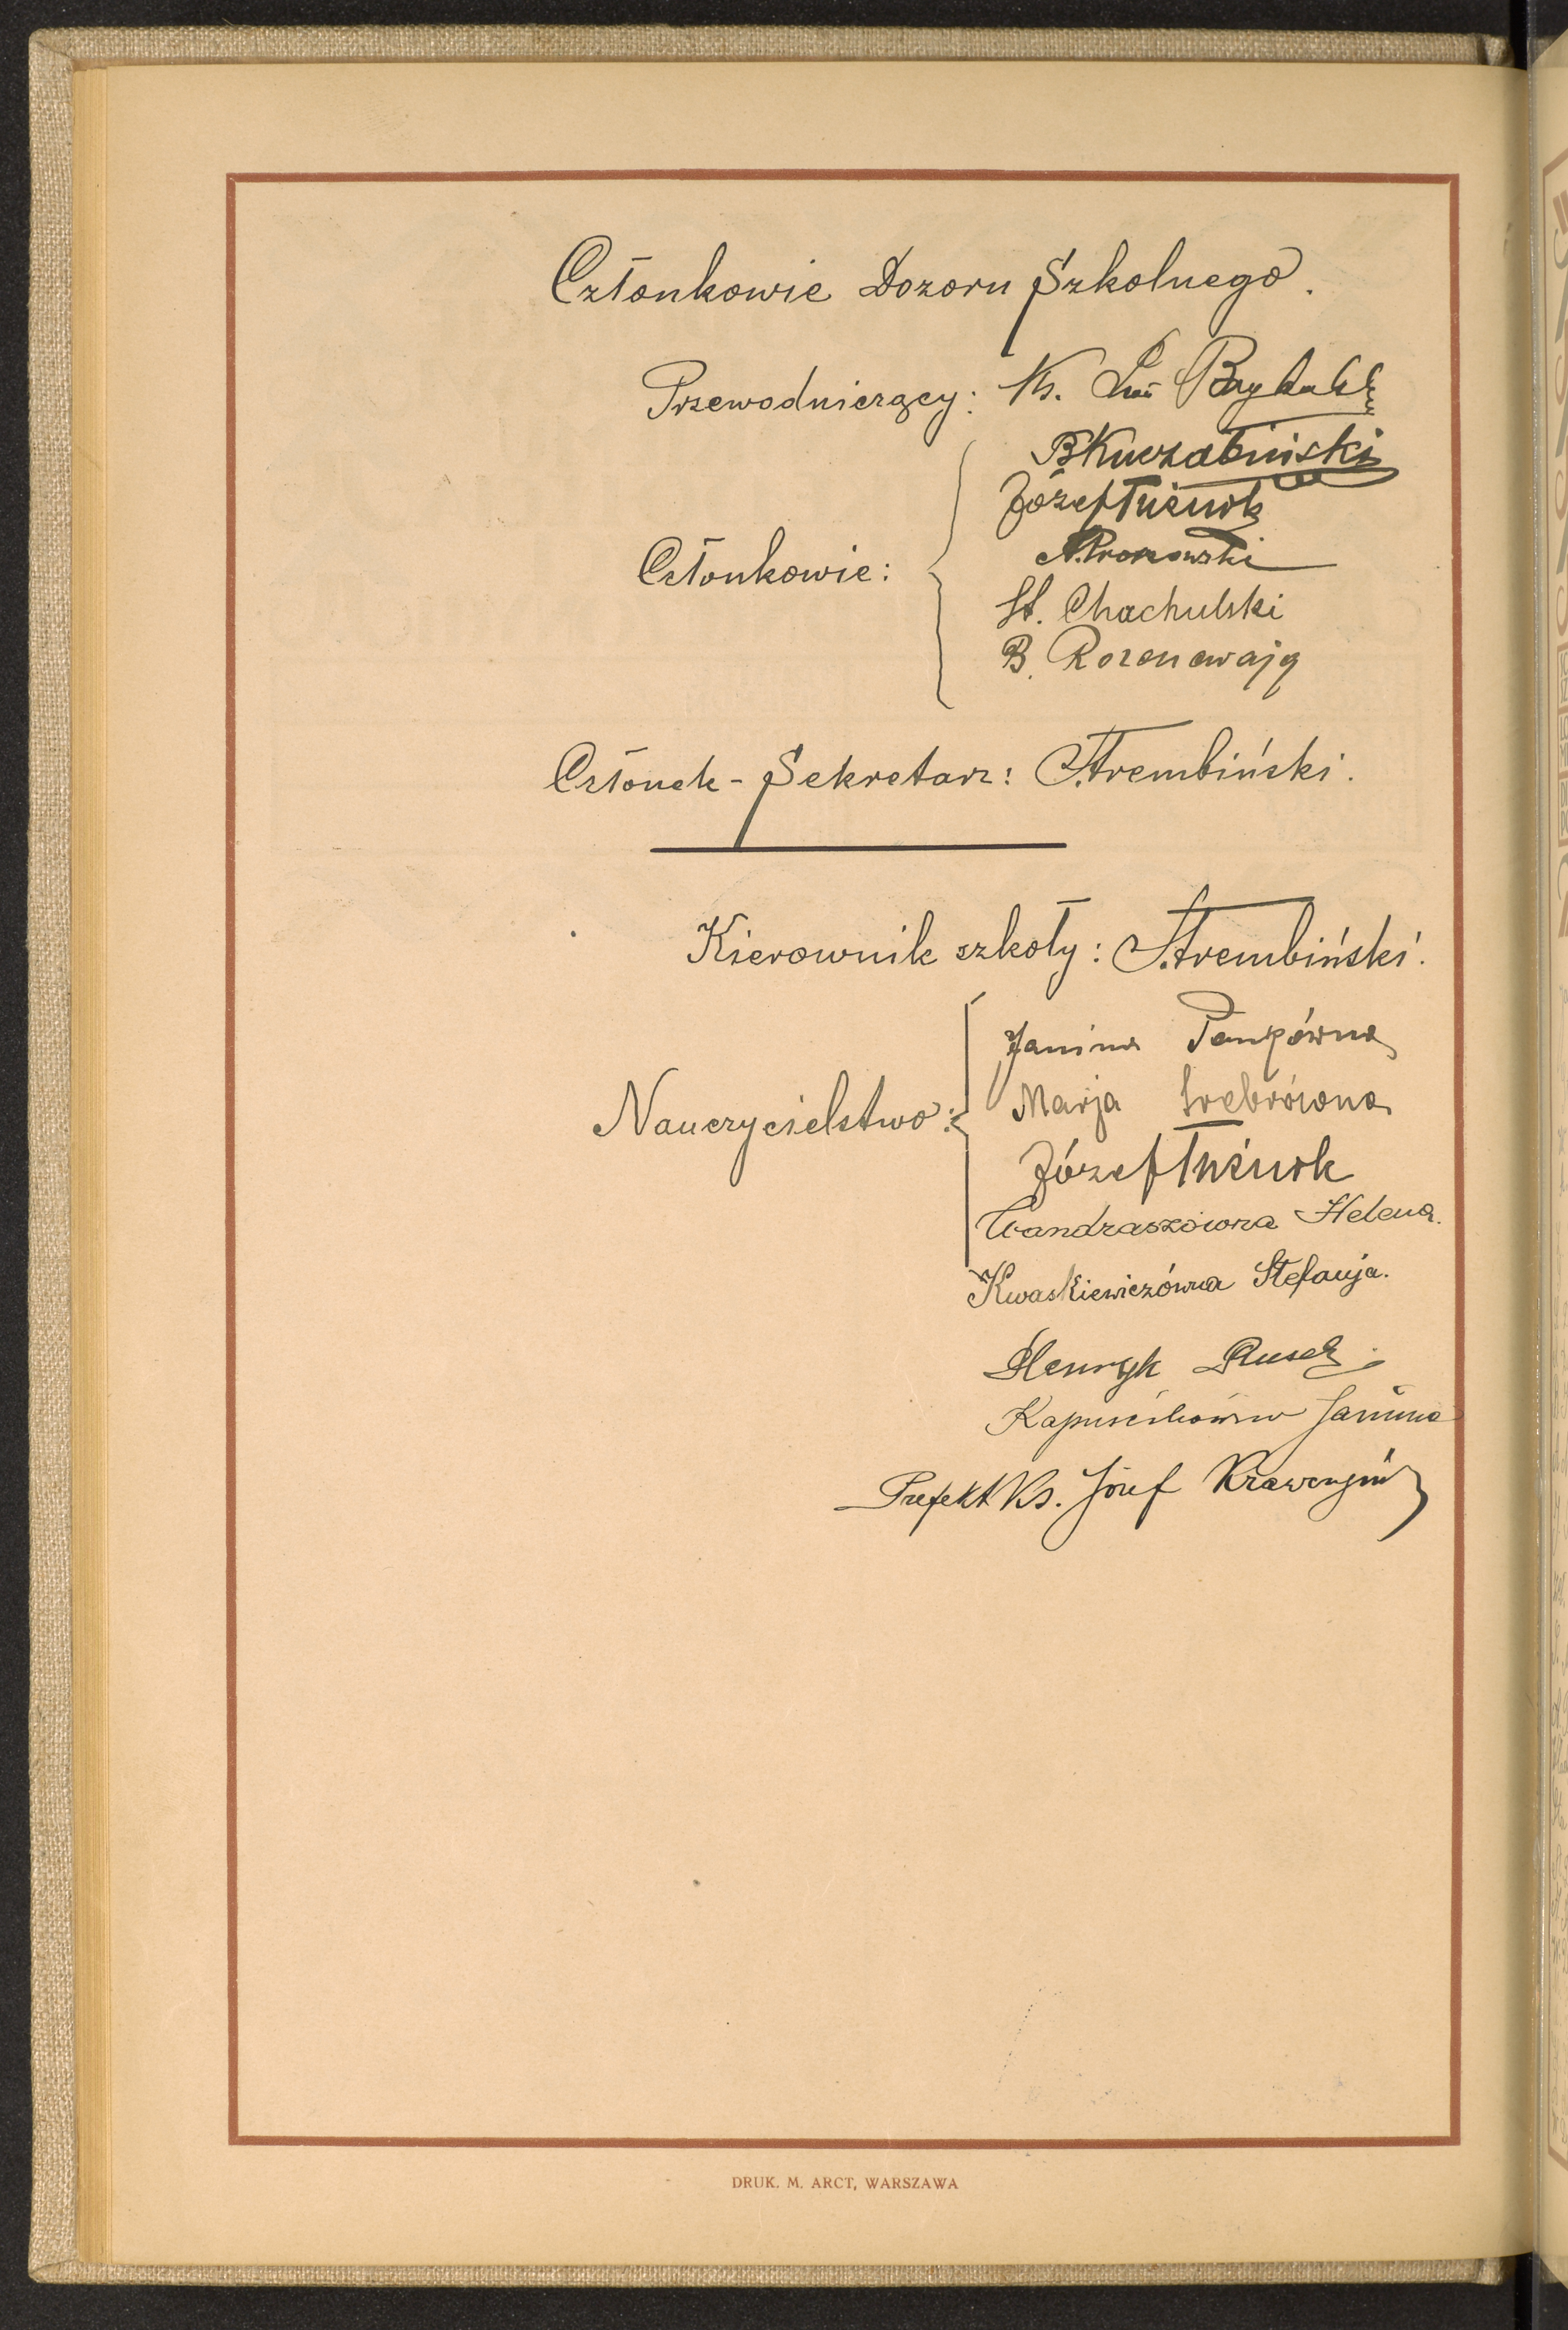 Członkowie Dozoru Szkolnego.
Przewodniczący: Ks.
B Kuczabiński
Józef
Członkowie:
St. Chachulski
B. Rozencwajg
Członek - Sekretarz: Strembiński.
Kierownik szkoły: Strembiński.
Janina
Nauczycielstwo:
Marja Srebrówna
Józef
Wandraszówna Helena.
Kwaskiewiczówna Stefanja.
Henryk
Kapuścikówna Janina
Prefekt Ks. Józef Krawczyń
DRUK. M. ARCT, WARSZAWA